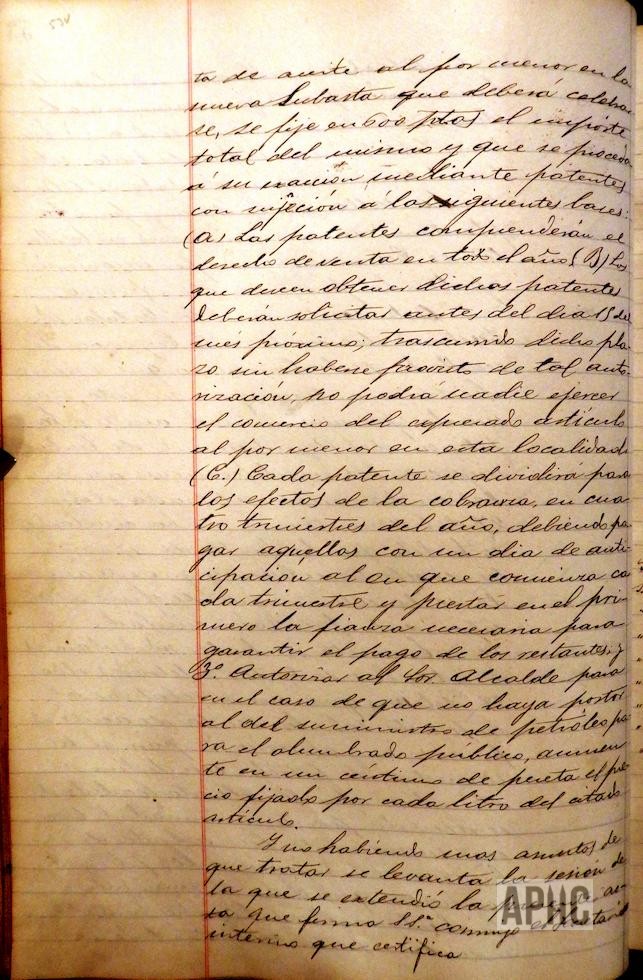 ta de aceite al por menor en la
nueva Subasta que deberá celebrar
se, se fije en 600 ptas el importe
total del mismo y que se proceda
á su exacción mediante patentes
con sujecion á las siguientes bases:
(A) Las patentes comprenderán el
derecho de venta en todo el año (B) Los
que deseen obtener dichas patentes
deberán solicitar antes del dia 15 del
més próximo; trascurrido dicho pla
zo sin haberse provisto de tal auto-
rización, no podrá nadie ejercer
el comercio del expresado artículo
al por menor en esta localidad
(C.) Cada patente se dividirá para
los efectos de la cobranza, en cua
tro trimestres del año, debiendo pa
gar aquellos con un dia de anti-
cipación al en que comienza ca
da trimestre y prestar en el pri-
mero la fianza necesaria para
garantir el pago de los restantes, y
3.º Autorizar al Sor Alcalde para
en el caso de que no haya postor
al del suministro de petróleo pa
ra el alumbrado público, aumen
te en un céntimo de peseta el pre
cio fijado por cada litro del citado
artículo.
Y no habiendo mas asuntos de
que tratar se levanta la sesión de
la que se extendió la presente ac-
ta que firma S.S.ª conmigo el Secretario
interino que certifica
APHC